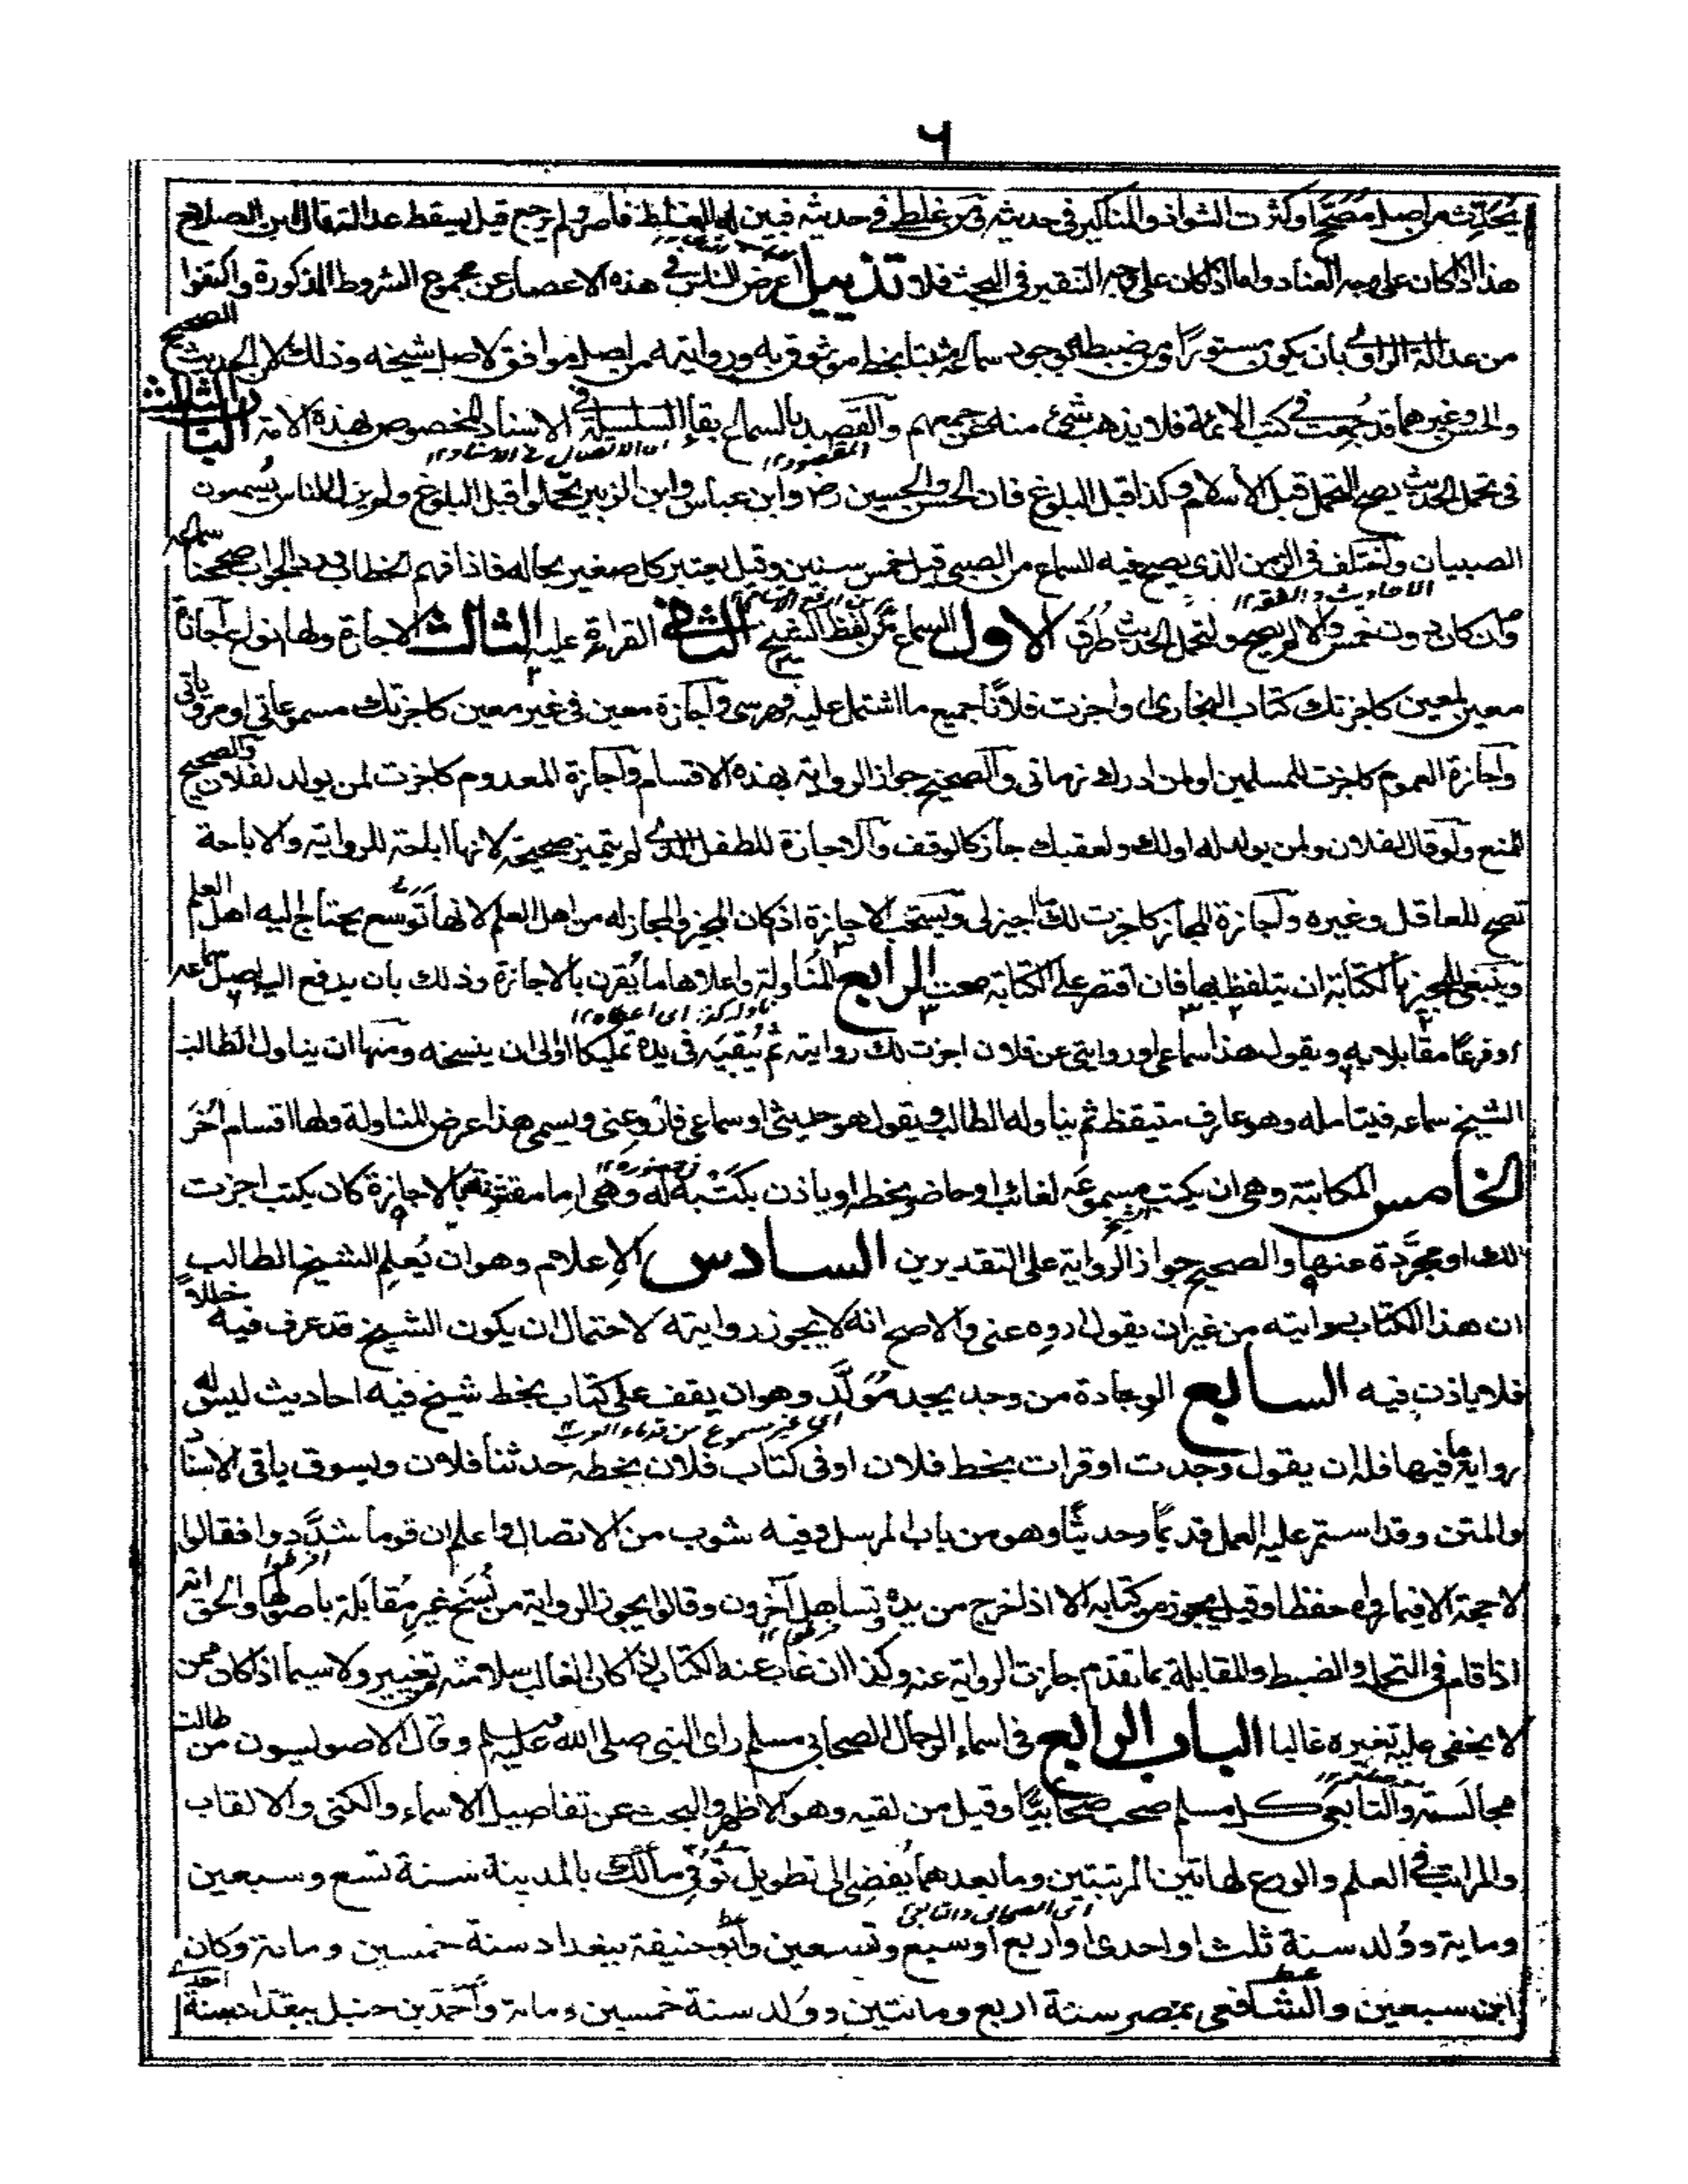 ٦
يُحَدِّث من اصل مُصَحَّح او كثرت الشواذ والمناكير فى حديثه ومن غلط فى حديثه فبين له الغلط فاصر ولم يرجع قيل يسقط عدالته قال ابن الصلاح
هذا اذا كان على وجه العناد واما اذا كان على وجه التنقير فى البحث فلا تذييل اعرض الناس فى هذه الاعصار عن مجموع الشروط المذكورة واكتفوا
من عدالة الراوى بان يكون مستورًا ومن ضبطه بوجود سماعه مثبتا بخط موثوق به وروايته من اصل موافق لاصل شيخه وذلك لان الحديث الصحيح
والحسن وغيرهما قد جُمِعت فى كتب الائمة فلا يذهب شئ منه عن جميعهم والقصد بالسماع بقاء السلسلة فى الاسناد المخصوص بهذه الامة الباب الثالث
المقصود١٢ اى الاتصال فى الاسناد١٢
فى تحمل الحديث يصح التحمل قبل الاسلام وكذا قبل البلوغ فان الحسن والحسين رض وابن عباس وابن الزبير تحملوا قبل البلوغ ولم يزل الناس يُسمعون
الصبيان واختلف فى الزمن الذى يصح فيه السماع من الصبى قيل خمس سنين وقيل يعتبر كل صغير بحاله فاذا فهم الخطاب ورد الجواب صححنا سماعه
الاحاديث
وان كان دون خمس والا لم يصح ولتحمل الحديث طُرُق الاول السماع من لفظ الشيخ الثانى القراءة عليه الثالث الاجازة ولها انواع اجازة
معين لمعين كاجزتك كتاب البخارى او اجزت فلانًا جميع ما اشتمل عليه فهرسى واجازة معين فى غير معين كاجزتك مسموعاتى او مروياتى
واجازة العموم كاجزت للمسلمين او لمن ادرك زمانى والصحيح جواز الرواية بهذه الاقسام واجازة المعدوم كاجزت لمن يولد لفلان والصحيح
المنع ولو قال لفلان ولمن يولد له او لك ولعقبك جاز كالوقف والاجازة للطفل الذى لم يتميز صحيحة لانها اباحة للرواية والاباحة
تصح للعاقل وغيره واجازة المجاز كاجزت لك ما اجيز لى ويستحب الاجازة اذ كان المجيز والمجاز له من اهل العلم لانها توسع يحتاج اليه اهل العلم
وينبغى للمجيز بالكتابة ان يتلفظ بها فان اقتصر على الكتابة صحت الرابع المناولة واعلاها ما يُقرن بالاجازة وذلك بان يدفع اليه اصل سماعه
اى اعطاه١٢
او فرعًا مقابلا به ويقول هذا سماعى او روايتى عن فلان اجزت لك روايته ثم يُبقيه فى يده تمليكا او الى ان ينسخه ومنها ان يناول الطالب
الشيخ سماعه فيتامله وهو عارف متيقظ ثم يناوله الطالب ويقول هو حديثى او سماعى فاروِ عنى ويسمى هذا عرض المناولة ولها اقسام اُخَر
الخامس المكاتبة وهى ان يكتب مسموعَه لغائب او حاضر بخطه او ياذن بكَتْبه له وهى اما مقترنة بالاجازة كان يكتب اجزت
لك او مجرَّدة عنها والصحيح جواز الرواية على التقديرين السادس الاعلام وهو ان يُعلِم الشيخ الطالب
ان هذا الكتاب روايته من غير ان يقول اروِه عنى والاصح انه لا يجوز روايته لاحتمال ان يكون الشيخ قد عرف فيه خللاً
فلا ياذن فيه السابع الوجادة من وجد يجد مُوَلَّد وهو ان يقف على كتاب بخط شيخ فيه احاديث ليس له
اى غير مسموع من قدماء العرب١٢
رواية ما فيها فله ان يقول وجدت او قرات بخط فلان او فى كتاب فلان بخطه حدثنا فلان ويسوق باقى الاسناد
والمتن وقد استمر عليه العمل قديمًا وحديثًا وهو من باب المرسل وفيه شوب من الاتصال واعلم ان قوما شدَّدوا فقالوا
افرطوا
لا حجة الا فيما رواه حفظا وقيل يجوز من كتابه الا اذا خرج من يده وتساهل آخرون وقالوا يجوز الرواية من نُسَخ غيرِ مُقابَلة باصولها والحق انه
فرطوا١٢
اذا قام فى التحمل والضبط والمقابلة بما تقدم جازت الرواية عنه وكذا ان غاب عنه الكتاب اذا كان الغالب سلامته من تغيير ولا سيما اذ كان ممن
لا يخفى عليه تغييره غالبا الباب الرابع فى اسماء الرجال الصحابى مسلم راى النبى صلى الله عليه وسلم وقال الاصوليون من طالت
مجالسته والتابعى كل مسلم صحب صحابيًّا وقيل من لقيه وهو الاظهر والبحث عن تفاصيل الاسماء والكنى والالقاب
والمراتب فى العلم والورع لهاتين المرتبتين وما بعدهما يُفضِى الى تطويل تُوُفِّى مالك بالمدينة سنة تسع وسبعين
اى الصحابى والتابعى
وماية ووُلد سنة ثلث او احدى او اربع او سبع وتسعين وابو حنيفة ببغداد سنة خمسين وماية وكان
ابن سبعين والشافعى بمصر سنة اربع ومائتين ووُلد سنة خمسين وماية واحمد بن حنبل ببغداد سنة احدى